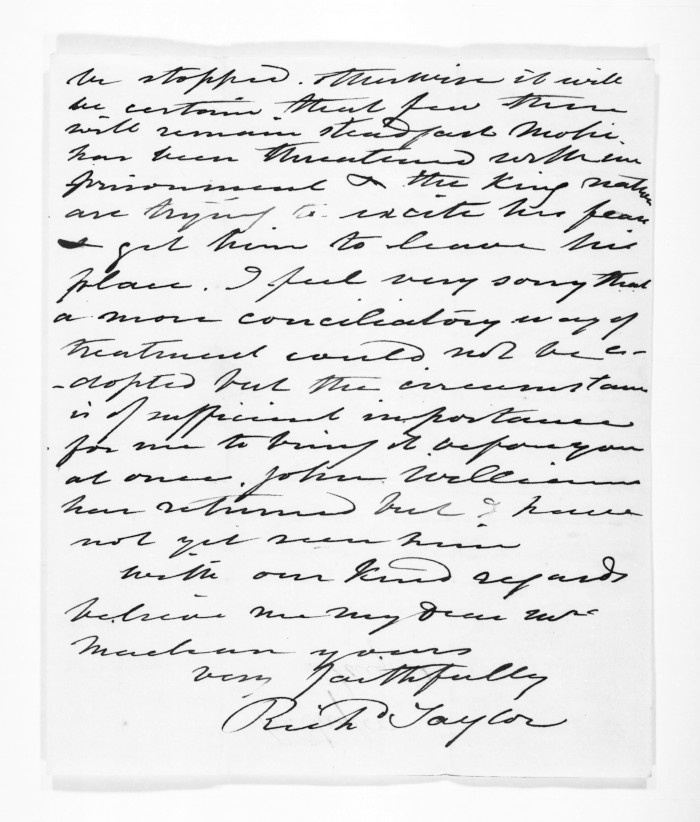 be stopped. otherwise it will
be certain that few there
will remain steadfast Mohi
has been threatened with im
prisonment & the King natives
are trying to excite his fears
& get him to leave his
place. I feel very sorry that
a more conciliatory way of
treatment could not be a-
-dopted but the circumstance
is of sufficient importance
for me to bring it before you
at once. John Williams
has returned but I have
not yet seen him
with our kind regards
believe me my Dear Mr
Maclean yours
very faithfully
Richd Taylor